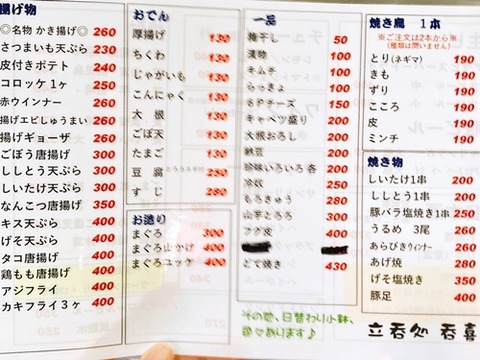 揚げ物
◎名物 かき揚げ◎ 260
さつまいも天ぷら 230
皮付きポテト 240
コロッケ 1ヶ 250
赤ウインナー 260
揚げエビしゅうまい 260
揚げギョーザ 260
ごぼう唐揚げ 300
ししとう天ぷら 300
しいたけ天ぷら 300
なんこつ唐揚げ 350
キス天ぷら 400
げそ天ぷら 400
タコ唐揚げ 400
鶏もも唐揚げ 400
アジフライ 400
カキフライ3ヶ 400
おでん
厚揚げ 130
ちくわ 130
じゃがいも 130
こんにゃく 130
大根 130
ごぼ天 130
たまご 130
豆腐 250
すじ 280
お造り
まぐろ 300
まぐろ山かけ 400
まぐろユッケ 400
一品
梅干し 50
漬物 100
キムチ 100
らっきょ 100
6Pチーズ 150
キャベツ盛り 200
大根おろし 200
納豆 200
珍味いろいろ 各 200
冷奴 250
もろきゅう 280
山芋とろろ 300
フグ皮 400
どて焼き 430
その他、日替わり小鉢、
色々あります♪
焼き鳥 1本
※ご注文は2本から※
(種類は問いません)
とり(ネギマ) 190
きも 190
ずり 190
こころ 190
皮 190
ミンチ 190
焼き物
しいたけ1串 200
ししとう1串 200
豚バラ塩焼き1串 250
うるめ 3尾 260
あらびきウィンナー 260
あげ焼 280
げそ塩焼き 350
豚足 400
立呑処 呑喜